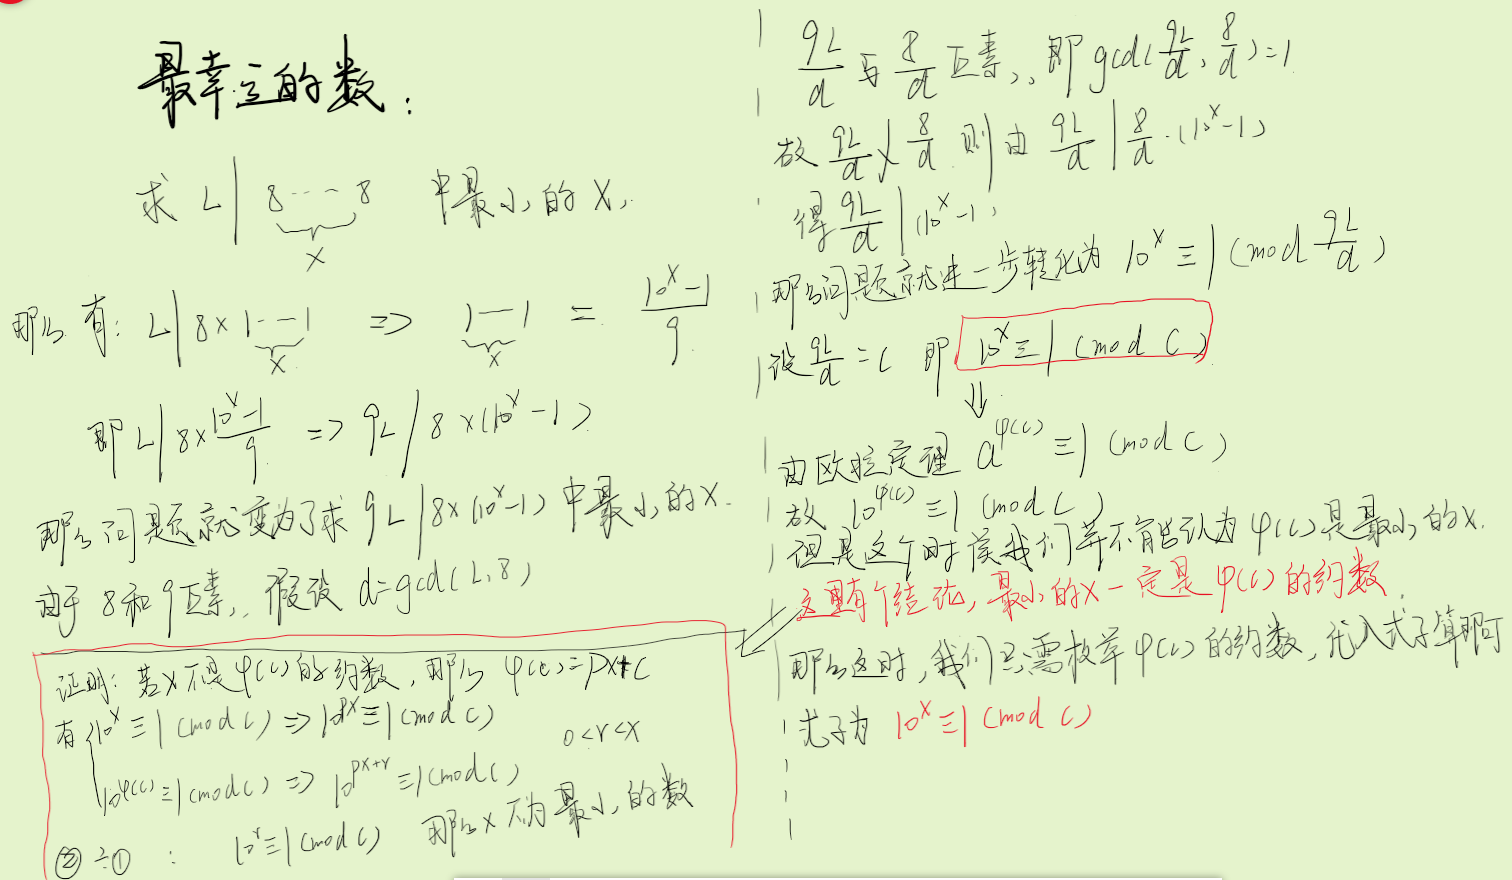 最幸运的数:
求 L | 8……8 中最小的 x.
x
那么有: L | 8×1……1 => 1……1 = (10^x-1)/9
x x
即 L | 8×(10^x-1)/9 => 9L | 8×(10^x-1)
那么问题就变为了求 9L | 8×(10^x-1) 中最小的x.
由于 8和9互素, 假设 d=gcd(L,8)
证明: 若x不是φ(c)的约数, 那么 φ(c)=px+r
有 10^x≡1(mod c) => 10^px≡1(mod c)
0<r<x
10^φ(c)≡1(mod c) => 10^(px+r)≡1(mod c)
②÷① : 10^r≡1(mod c) 那么x不为最小的数
9L/d 与 8/d 互素, 即gcd(9L/d, 8/d)=1
故 9L/d ∤ 8/d 则由 9L/d | 8/d·(10^x-1)
得 9L/d | (10^x-1)
那么问题就进一步转化为 10^x≡1(mod 9L/d)
设 9L/d=c 即 10^x≡1(mod c)
⇓
由欧拉定理 a^φ(c)≡1(mod c)
故 10^φ(c)≡1(mod c)
但是这个时候我们并不能认为φ(c)是最小的x.
这里有个结论, 最小的x一定是φ(c)的约数.
那么这时, 我们只需枚举φ(c)的约数, 代入式子算即可
式子为 10^x≡1(mod c)